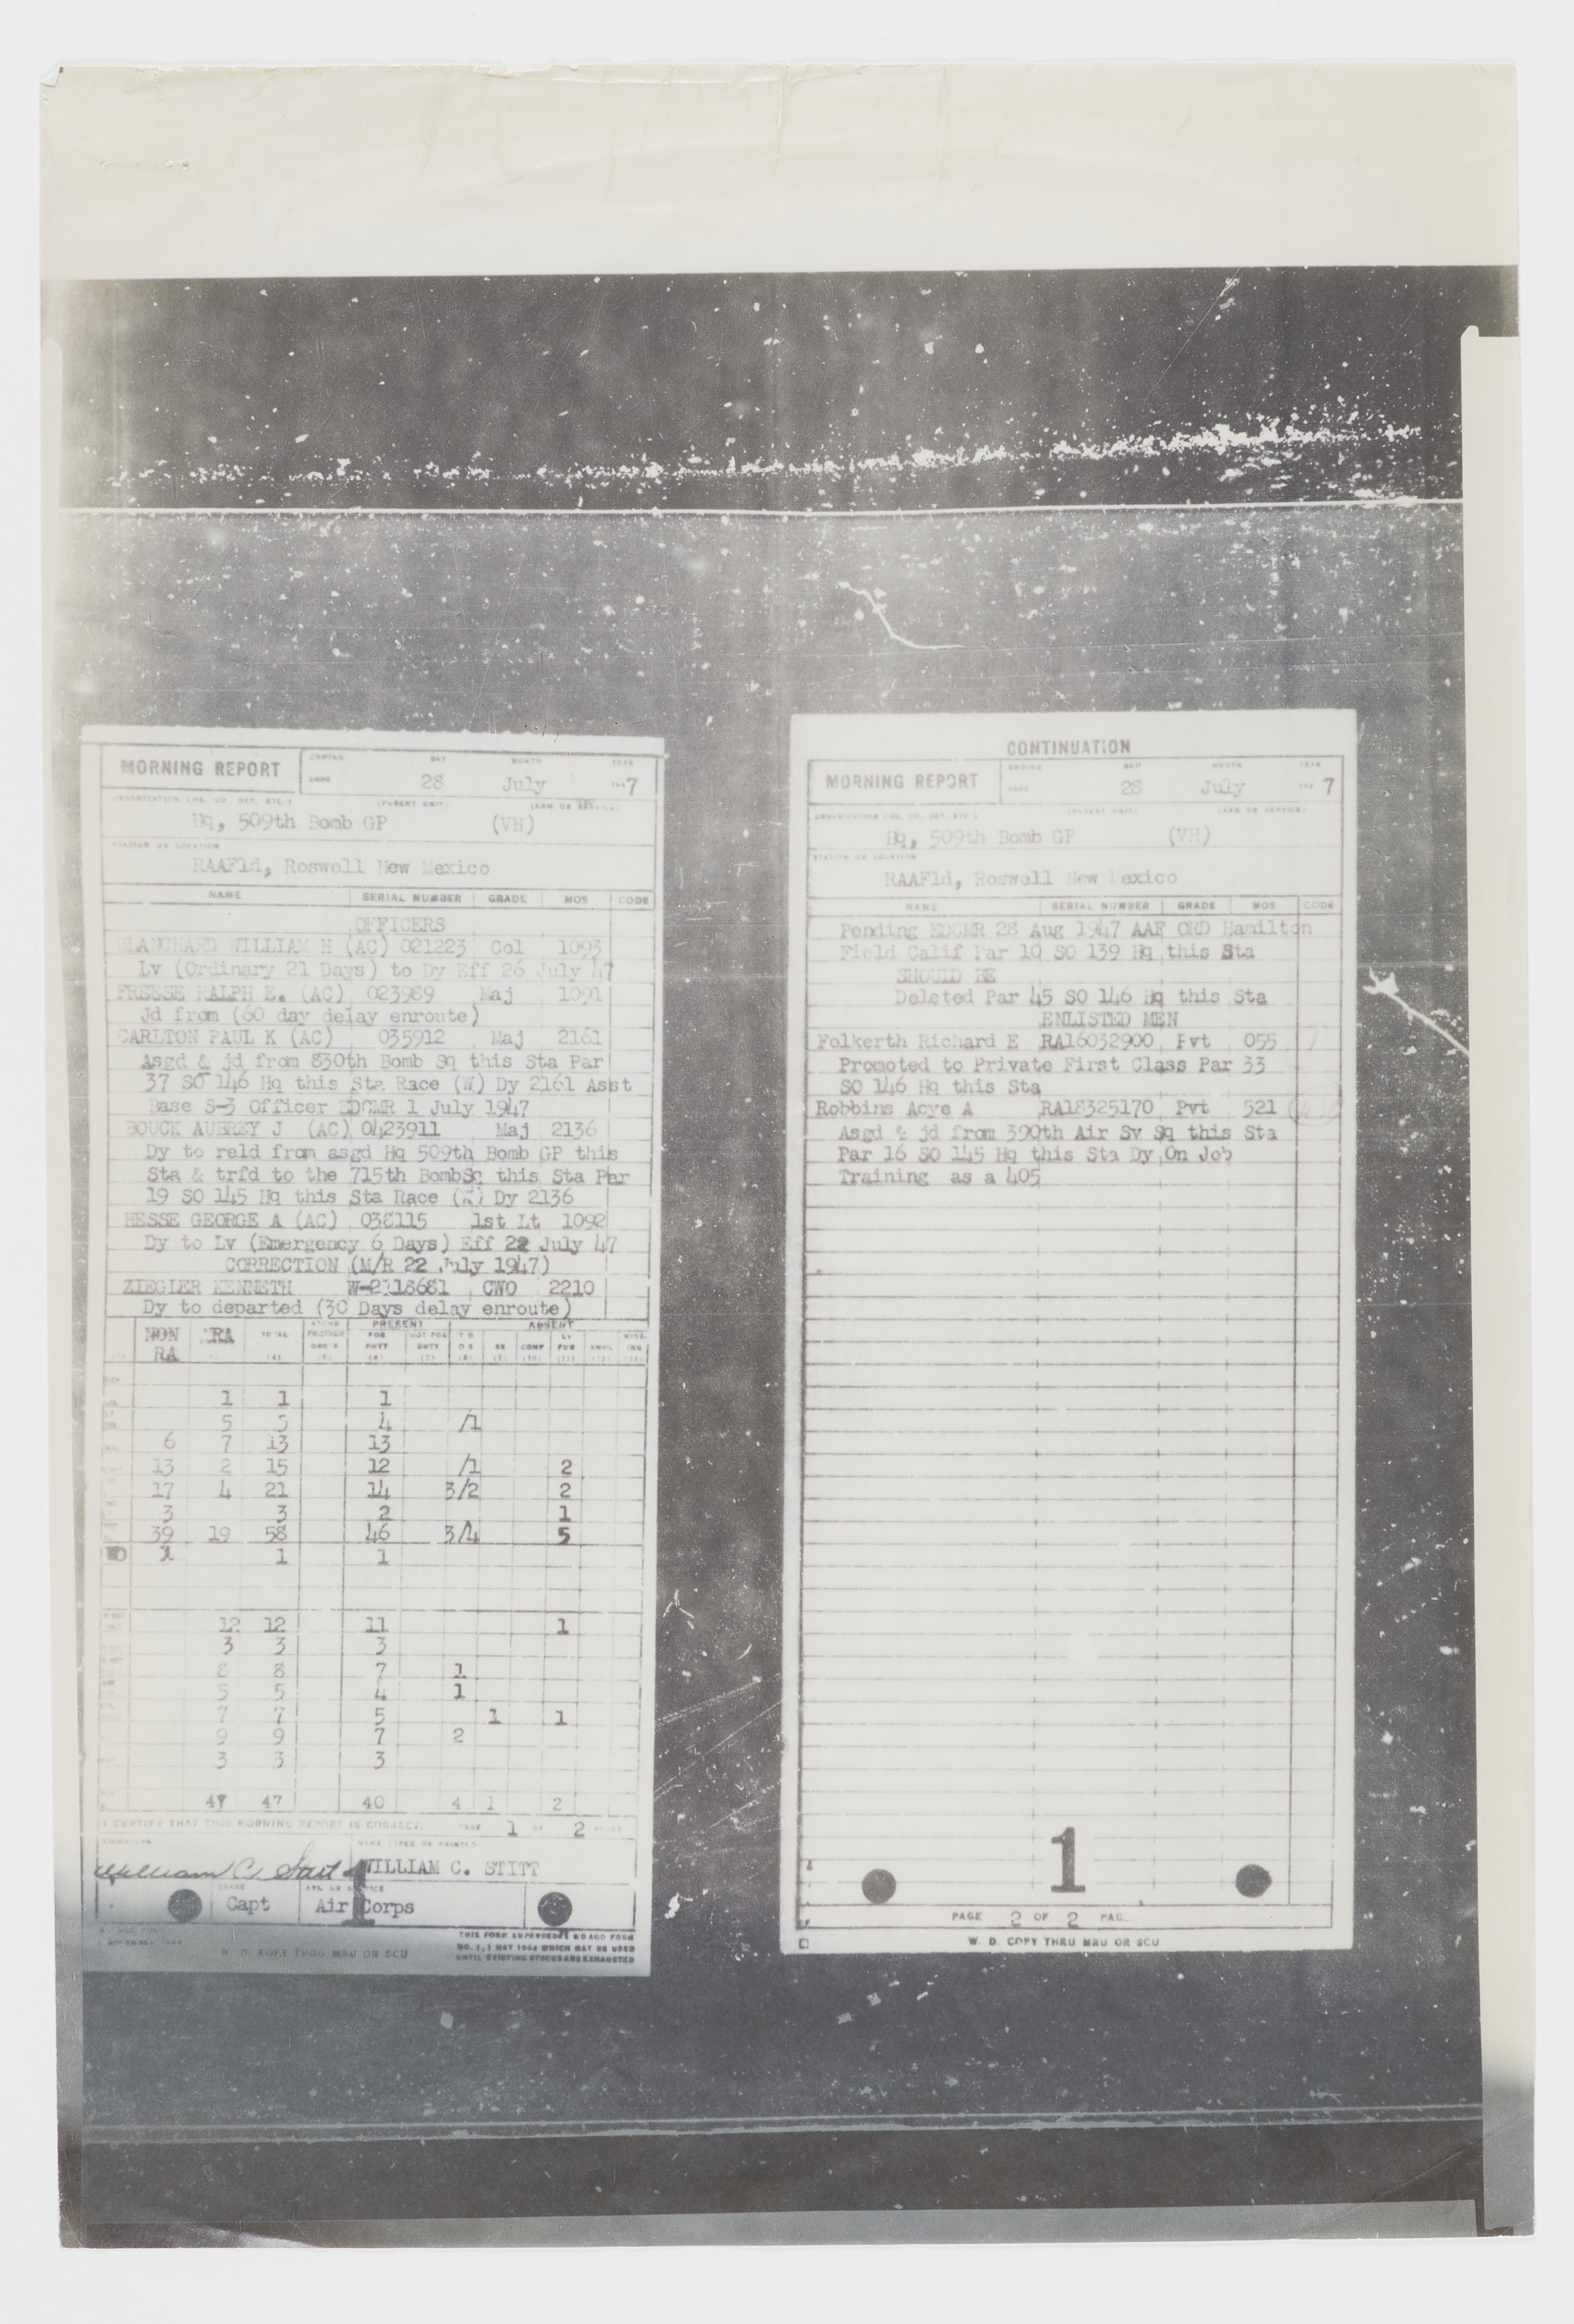 MORNING REPORT
ENDING DAY MONTH YEAR
28 July 1947
ORGANIZATION (HQ. CO. DET. ETC.) (PARENT UNIT) (ARM OR SERVICE)
Hq, 509th Bomb GP (VH)
STATION OR LOCATION
RAAFld, Roswell New Mexico
NAME SERIAL NUMBER GRADE MOS CODE
OFFICERS
BLANCHARD WILLIAM H (AC) 021223 Col 1093
Lv (Ordinary 21 Days) to Dy Eff 26 July 47
FREESE RALPH E. (AC) 023989 Maj 1091
Jd from (60 day delay enroute)
CARLTON PAUL K (AC) 035912 Maj 2161
Asgd & jd from 830th Bomb Sq this Sta Par
37 SO 146 Hq this Sta Race (W) Dy 2161 Asst
Base S-3 Officer EDCMR 1 July 1947
BOUCK AUBREY J (AC) 0423911 Maj 2136
Dy to reld from asgd Hq 509th Bomb GP this
Sta & trfd to the 715th BombSq this Sta Par
19 SO 145 Hq this Sta Race (W) Dy 2136
HESSE GEORGE A (AC) 038115 1st Lt 1092
Dy to Lv (Emergency 6 Days) Eff 22 July 47
CORRECTION (M/R 22 July 1947)
ZIEGLER KENNETH W-2118681 CWO 2210
Dy to departed (30 Days delay enroute)
PRESENT ABSENT
NON RA RA TOTAL FOR DUTY NOT FOR DUTY T D D S SK CONF LV FUR AWOL MISSING
1 1 1
5 5 4 /1
6 7 13 13
13 2 15 12 /1 2
17 4 21 14 3/2 2
3 3 2 1
39 19 58 46 3/4 5
WO 1 1 1
12 12 11 1
3 3 3
8 8 7 1
5 5 4 1
7 7 5 1 1
9 9 7 2
3 3 3
47 47 40 4 1 2
I CERTIFY THAT THIS MORNING REPORT IS CORRECT: PAGE 1 OF 2 PAGES
SIGNATURE NAME TYPED OR PRINTED
William C. Stitt WILLIAM C. STITT
GRADE ARM OR SERVICE
Capt Air Corps
1
W. D. COPY THRU MRU OR SCU
THIS FORM SUPERSEDES WD AGO FORM
NO. 1, 1 MAY 1944 WHICH MAY BE USED
UNTIL EXISTING STOCKS ARE EXHAUSTED
CONTINUATION
MORNING REPORT
ENDING DAY MONTH YEAR
28 July 1947
ORGANIZATION (HQ. CO. DET. ETC.) (PARENT UNIT) (ARM OR SERVICE)
Hq, 509th Bomb GP (VH)
STATION OR LOCATION
RAAFld, Roswell New exico
NAME SERIAL NUMBER GRADE MOS CODE
Pending EDCMR 28 Aug 1947 AAF ORD Hamilton
Field Calif Par 10 SO 139 Hq this Sta
SHOULD BE
Deleted Par 45 SO 146 Hq this Sta
ENLISTED MEN
Folkerth Richard E RA16032900 Pvt 055
Promoted to Private First Class Par 33
SO 146 Hq this Sta
Robbins Acye A RA18325170 Pvt 521
Asgd & jd from 390th Air Sv Sq this Sta
Par 16 SO 145 Hq this Sta Dy On Job
Training as a 405
1
PAGE 2 OF 2 PAG
W. D. COPY THRU MRU OR SCU